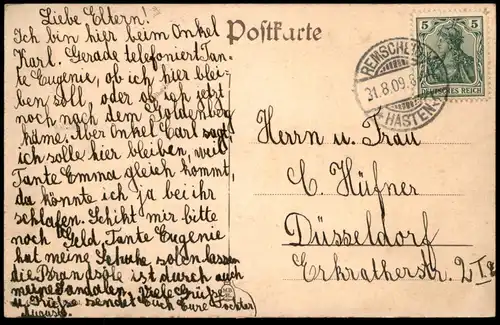 Liebe Eltern!
Ich bin hier beim Onkel
Karl. Gerade telefoniert Tan-
te Eugenie, ob ich hier blei-
ben soll oder ob ich jetzt
noch nach dem Goldenberg
käme. Aber Onkel Carl sagt
ich solle hier bleiben, weil
Tante Emma gleich kommt,
da könnte ich ja bei ihr
schlafen. Schikt mir bitte
noch Geld, Tante Eugenie
hat meine Schuhe solen lassen
die Brandsole ist durch auch
meine Sandalen. Viele Grüße
u. Küsse sendet Euch Eure Tochter
Auguste.
Postkarte
5 5
DEUTSCHES REICH
REMSCHEID
31.8.09.8
HASTEN
Herrn u. Frau
C. Hüfner
Düsseldorf
Erkratherstr. 2 I